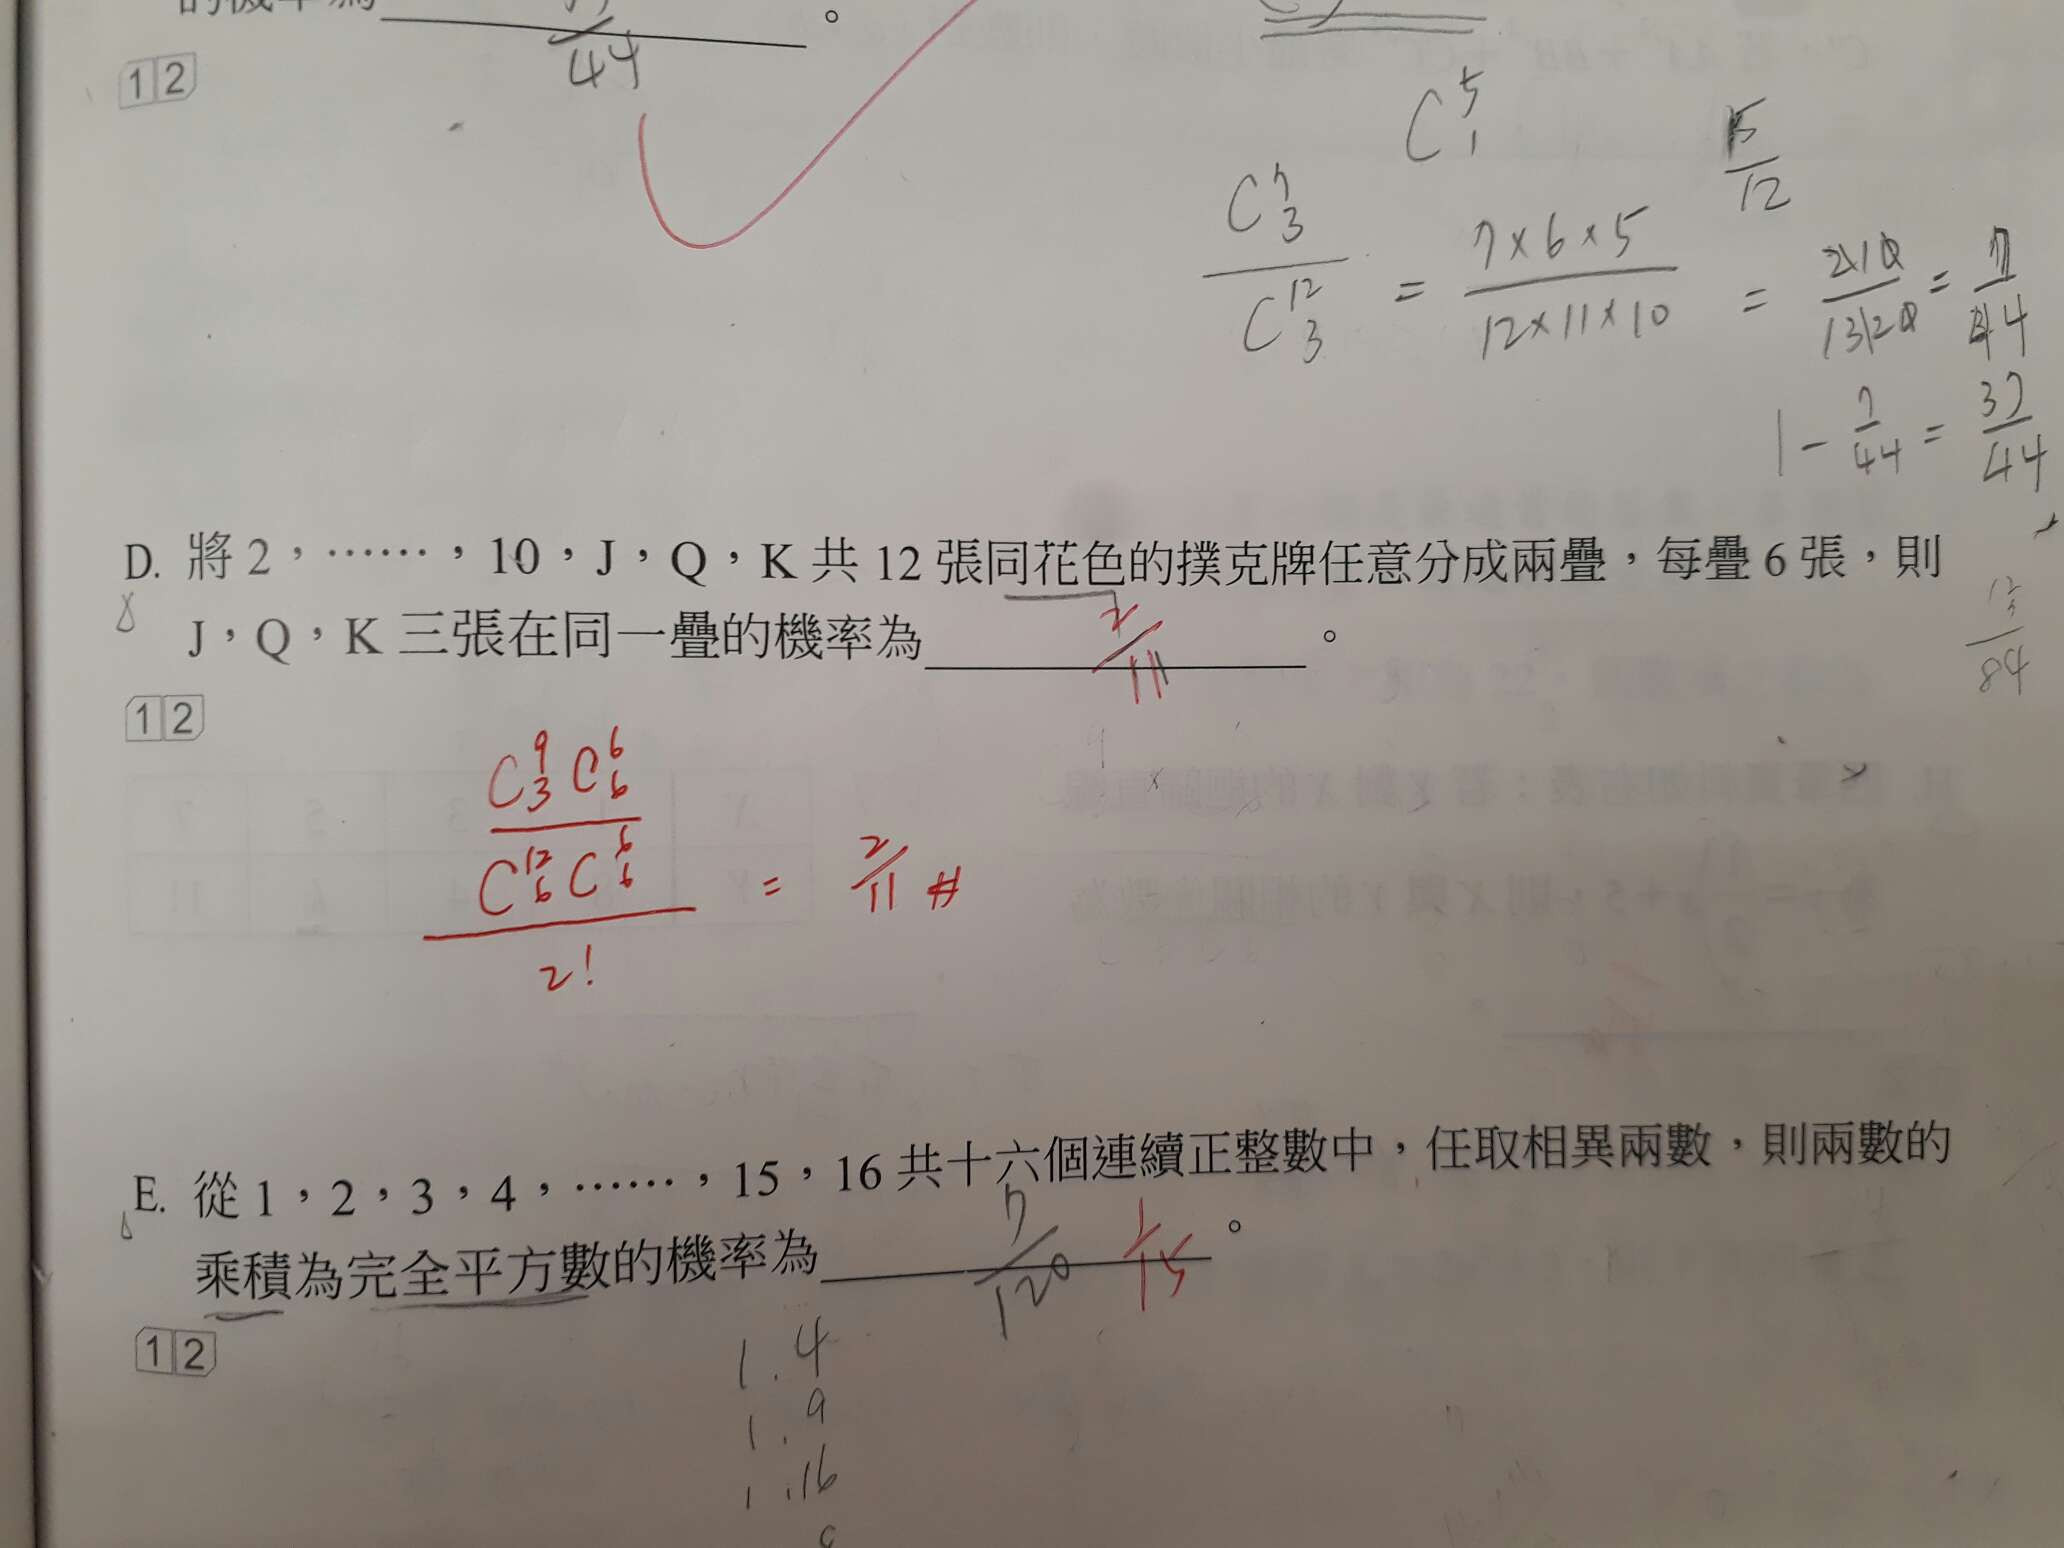 的機率為
44
。
1 2
C 5 1
5/12
C 7 3 / C 12 3 = 7×6×5 / 12×11×10 = 210/1320 = 7/44
1 - 7/44 = 37/44
D. 將 2，……，10，J，Q，K 共 12 張同花色的撲克牌任意分成兩疊，每疊 6 張，則
J，Q，K 三張在同一疊的機率為 2/11 。
84
1 2
C 9 3 C 6 6
C 12 6 C 6 6 = 2/11 #
2!
E. 從 1，2，3，4，……，15，16 共十六個連續正整數中，任取相異兩數，則兩數的
乘積為完全平方數的機率為 7/120 1/15 。
1 2
1.4
1.9
1.16